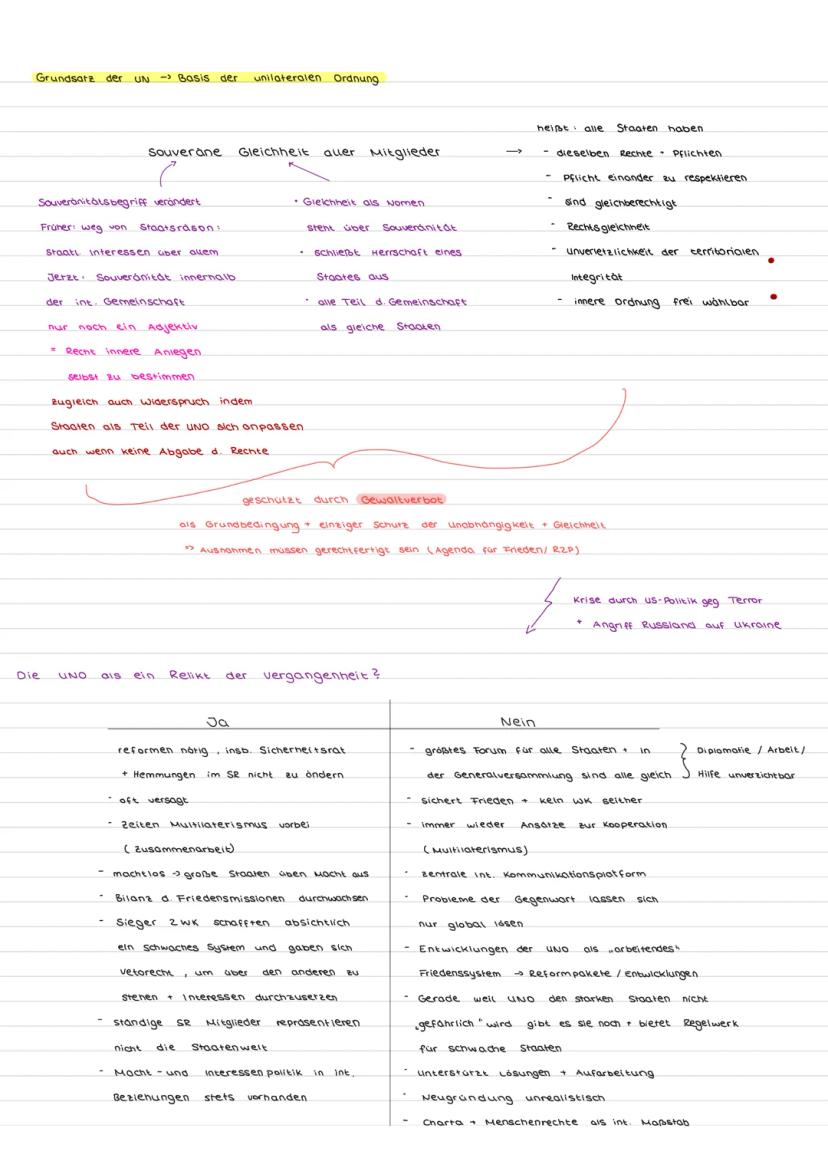 Grundsatz der UN -> Basis der unilateralen Ordnung
Souveräne Gleichheit aller Mitglieder →
heißt: alle Staaten haben
- dieselben Rechte + Pflichten
- Pflicht einander zu respektieren
- sind gleichberechtigt
- Rechtsgleichheit
- Unverletzlichkeit der territorialen
Integrität
- innere Ordnung frei wählbar
Souveränitätsbegriff verändert
Früher: weg von Staatsräson:
staatl. Interessen über allem
Jetzt: Souveränität innerhalb
der int. Gemeinschaft
nur noch ein Adjektiv
= Recht innere Anliegen
selbst zu bestimmen
zugleich auch Widerspruch indem
Staaten als Teil der UNO sich anpassen
auch wenn keine Abgabe d. Rechte
• Gleichheit als Nomen
steht über Souveränität
• schließt Herrschaft eines
Staates aus
• alle Teil d. Gemeinschaft
als gleiche Staaten
geschützt durch Gewaltverbot
als Grundbedingung + einziger Schutz der Unabhängigkeit + Gleichheit
=> Ausnahmen müssen gerechtfertigt sein (Agenda für Frieden/ R2P)
Krise durch US-Politik geg Terror
+ Angriff Russland auf Ukraine
Die UNO als ein Relikt der Vergangenheit?
Ja
reformen nötig, insb. Sicherheitsrat
+ Hemmungen im SR nicht zu ändern
- oft versagt
- Zeiten Multilaterismus vorbei
(Zusammenarbeit)
- machtlos -> große Staaten üben Macht aus
- Bilanz d. Friedensmissionen durchwachsen
- Sieger 2 WK schafften absichtlich
ein schwaches System und gaben sich
Vetorecht, um über den anderen zu
stehen + Interessen durchzusetzen
- ständige SR Mitglieder repräsentieren
nicht die Staatenwelt
- Macht- und Interessenpolitik in int.
Beziehungen stets vorhanden
Nein
- größtes Forum für alle Staaten + in
der Generalversammlung sind alle gleich
} Diplomatie / Arbeit/
Hilfe unverzichtbar
- sichert Frieden + kein WK seither
- immer wieder Ansätze zur Kooperation
(Multilaterismus)
- zentrale int. Kommunikationsplatform
- Probleme der Gegenwart lassen sich
nur global lösen
- Entwicklungen der UNO als „arbeitendes"
Friedenssystem -> Reformpakete / Entwicklungen
- Gerade weil UNO den starken Staaten nicht
„gefährlich" wird gibt es sie noch + bietet Regelwerk
für schwache Staaten
- unterstützt Lösungen + Aufarbeitung
- Neugründung unrealistisch
- Charta + Menschenrechte als int. Maßstab